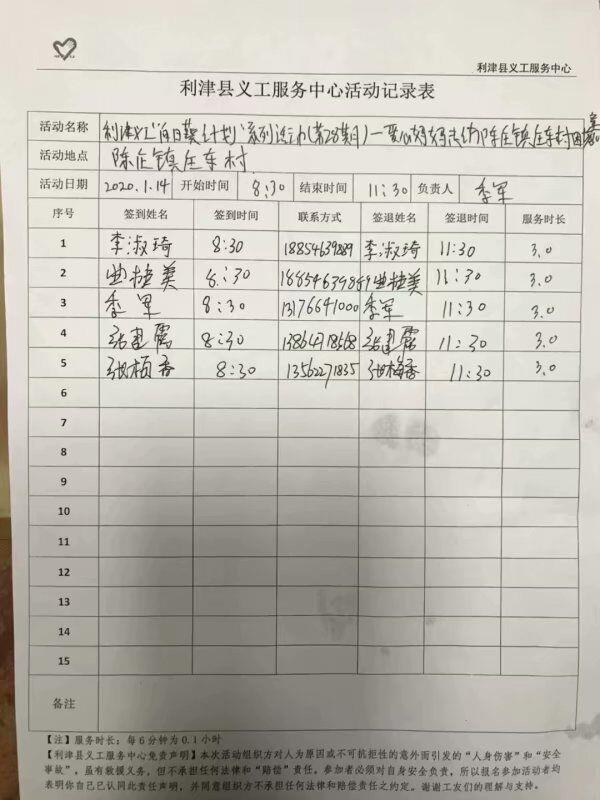 利津县义工服务中心
利津县义工服务中心活动记录表
活动名称 利津义工"向日葵计划"系列活动(第28期)—爱心妈妈走访陈庄镇庄车村困境
活动地点 陈庄镇庄车村
活动日期 2020.1.14 开始时间 8:30 结束时间 11:30 负责人 季军
序号 签到姓名 签到时间 联系方式 签退姓名 签退时间 服务时长
1 李淑琦 8:30 18854639889 李淑琦 11:30 3.0
2 8:30 11:30 3.0
3 季军 8:30 13176641000 季军 11:30 3.0
4 张建霞 8:30 13864718668 张建霞 11:30 3.0
5 张梅香 8:30 13562271835 张梅香 11:30 3.0
6
7
8
9
10
11
12
13
14
15
备注
【注】服务时长：每6分钟为0.1小时
【利津县义工服务中心免责声明】本次活动组织方对人为原因或不可抗拒性的意外而引发的"人身伤害"和"安全
事故"，虽有救援义务，但不承担任何法律和"赔偿"责任。参加者必须对自身安全负责，所以报名参加活动者均
表明你自己已认同此责任声明，并同意组织方不承担任何法律和赔偿责任之约定。谢谢工友们的理解与支持。